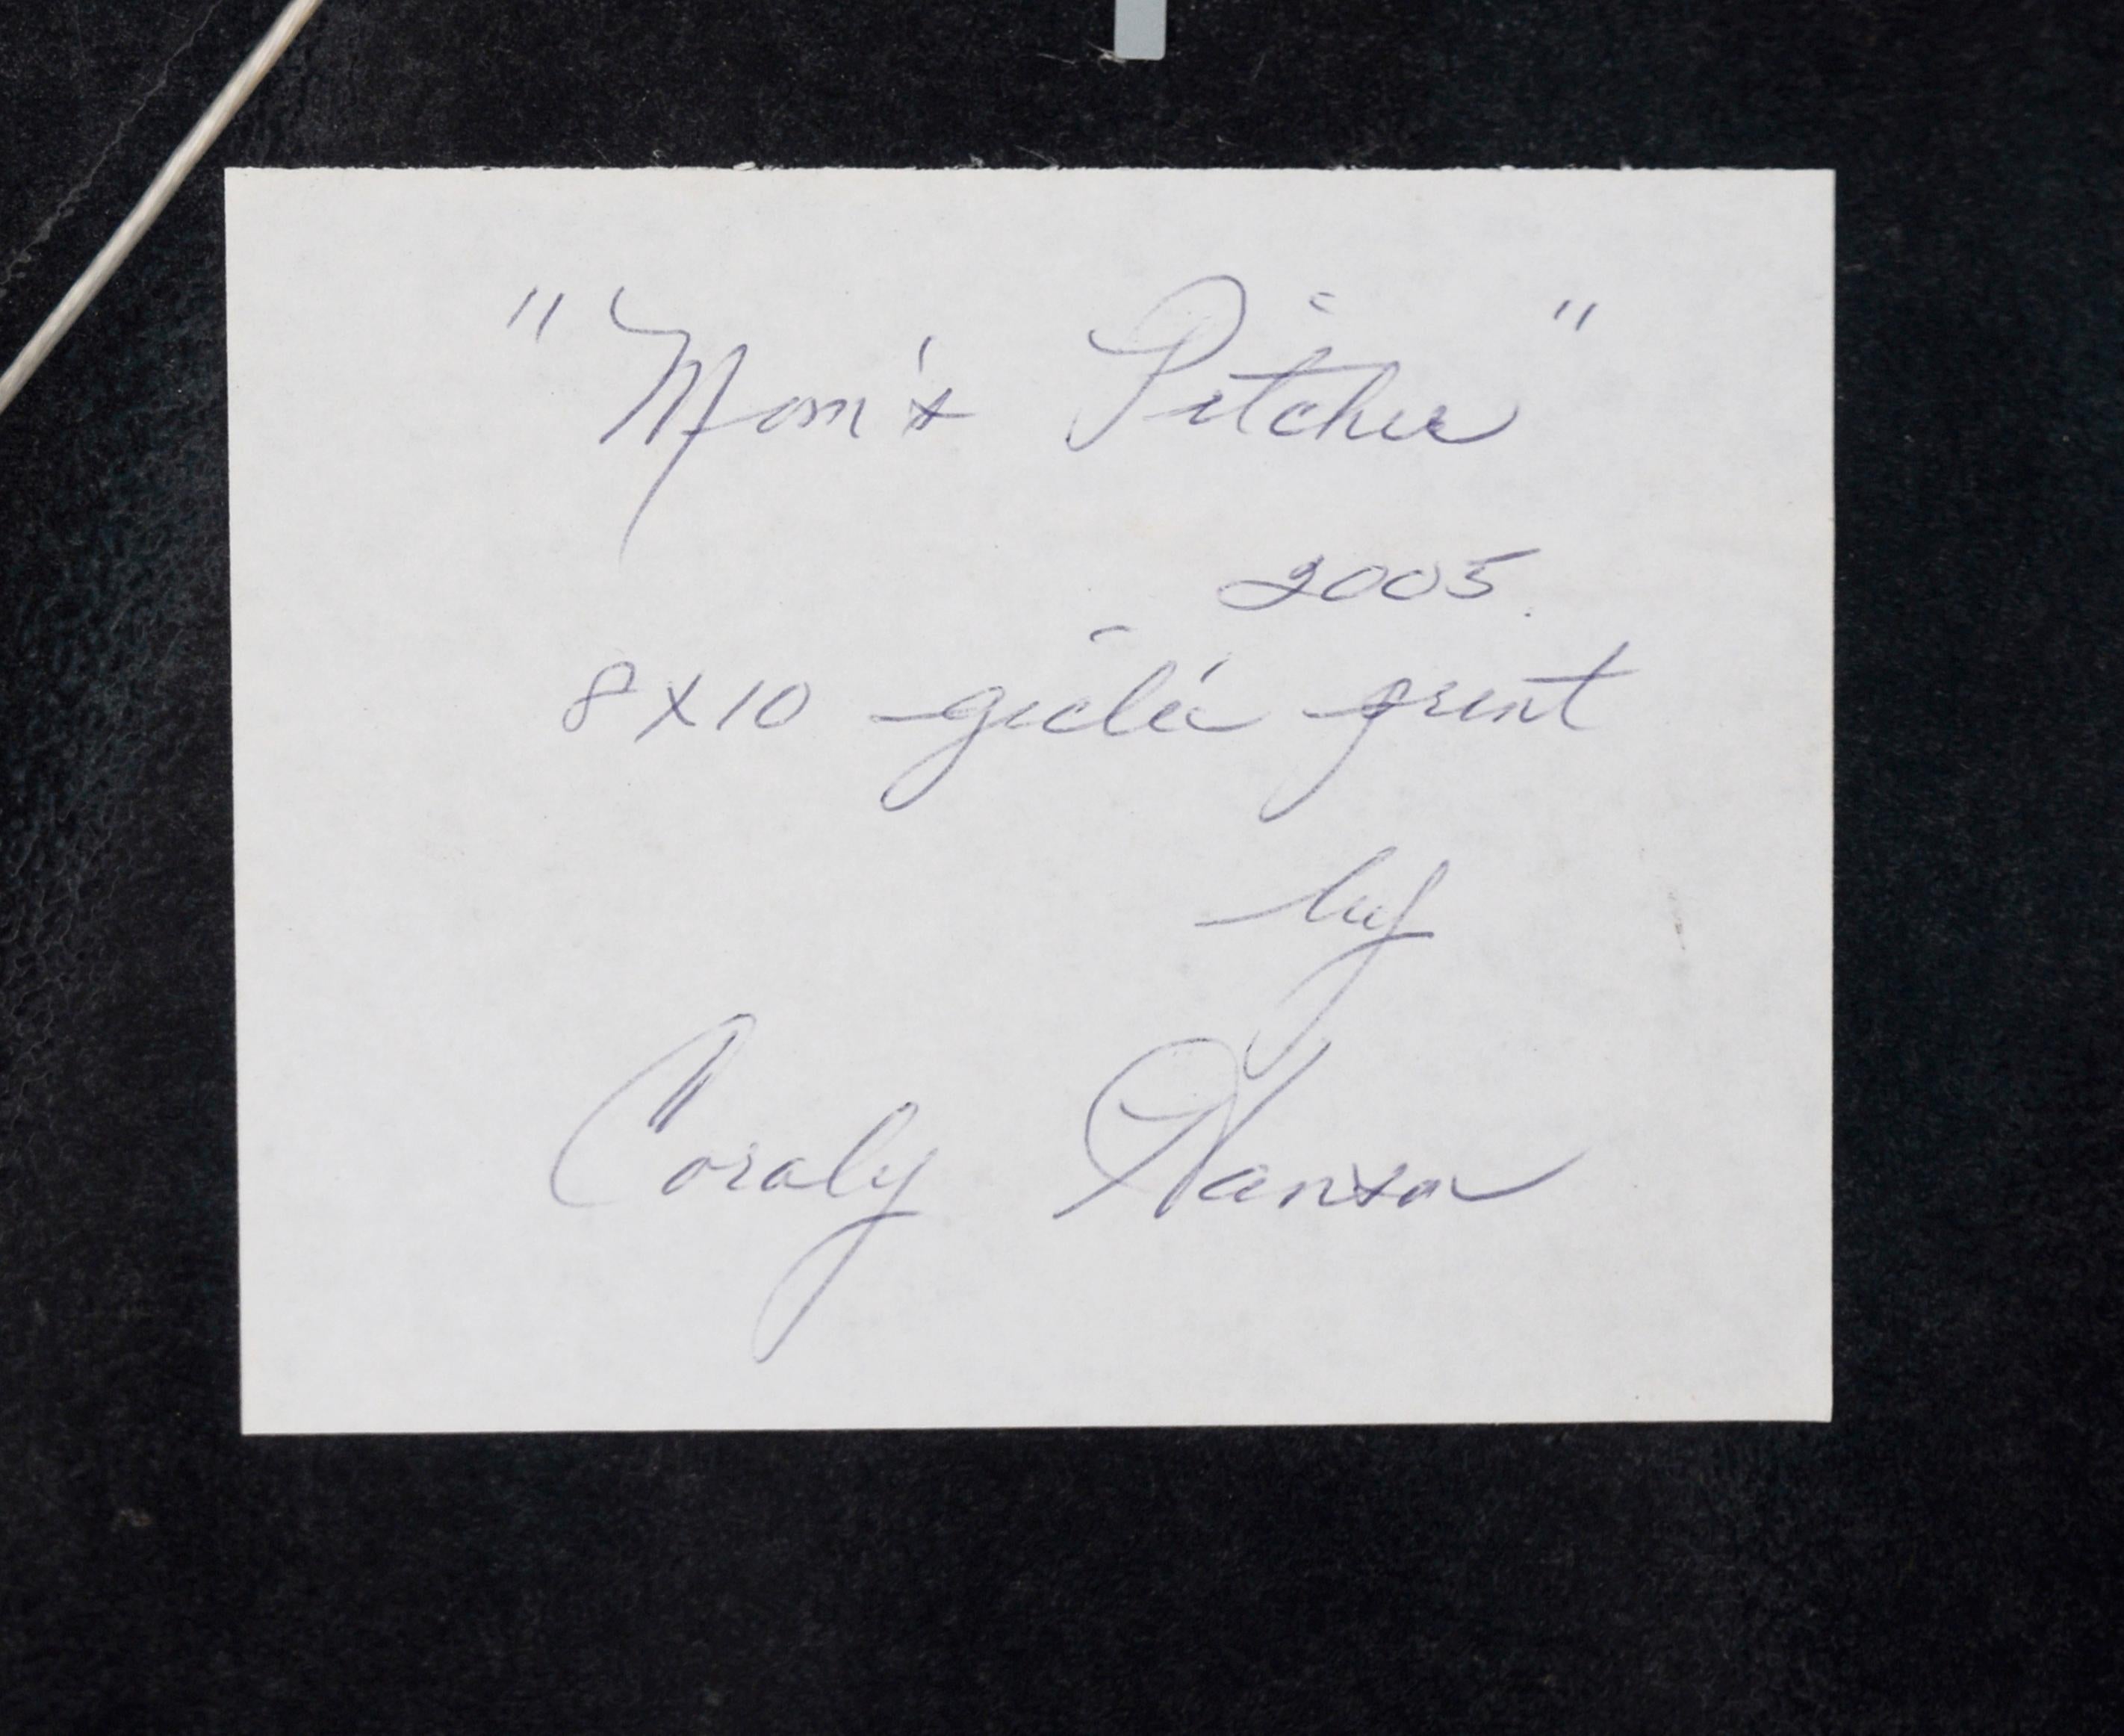 "Mom's Pitcher"
2005
8x10 giclée print
by
Coraly Hanson